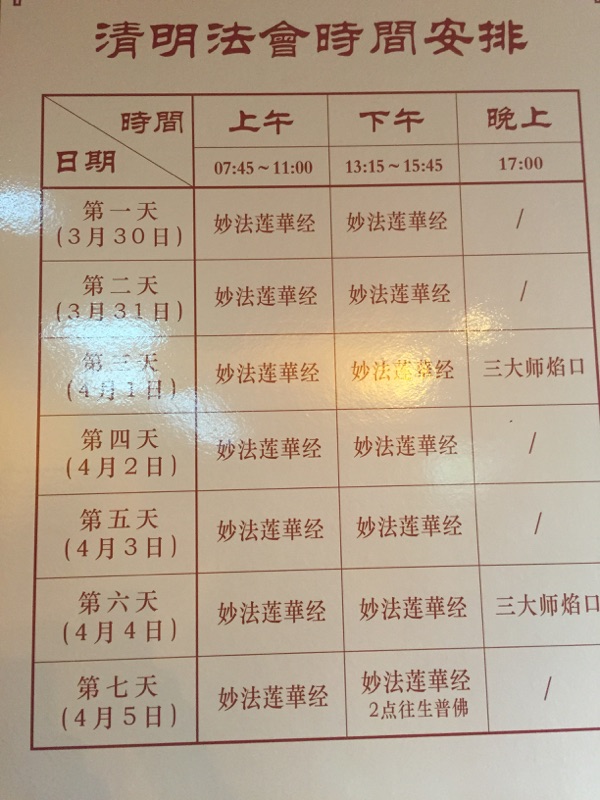 清明法會時間安排
時間 上午 下午 晚上
日期 07:45～11:00 13:15～15:45 17:00
第一天
(3月30日) 妙法莲華经 妙法莲華经 /
第二天
(3月31日) 妙法莲華经 妙法莲華经 /
第三天
(4月1日) 妙法莲華经 妙法莲華经 三大师焰口
第四天
(4月2日) 妙法莲華经 妙法莲華经 /
第五天
(4月3日) 妙法莲華经 妙法莲華经 /
第六天
(4月4日) 妙法莲華经 妙法莲華经 三大师焰口
第七天
(4月5日) 妙法莲華经 妙法莲華经 /
2点往生普佛